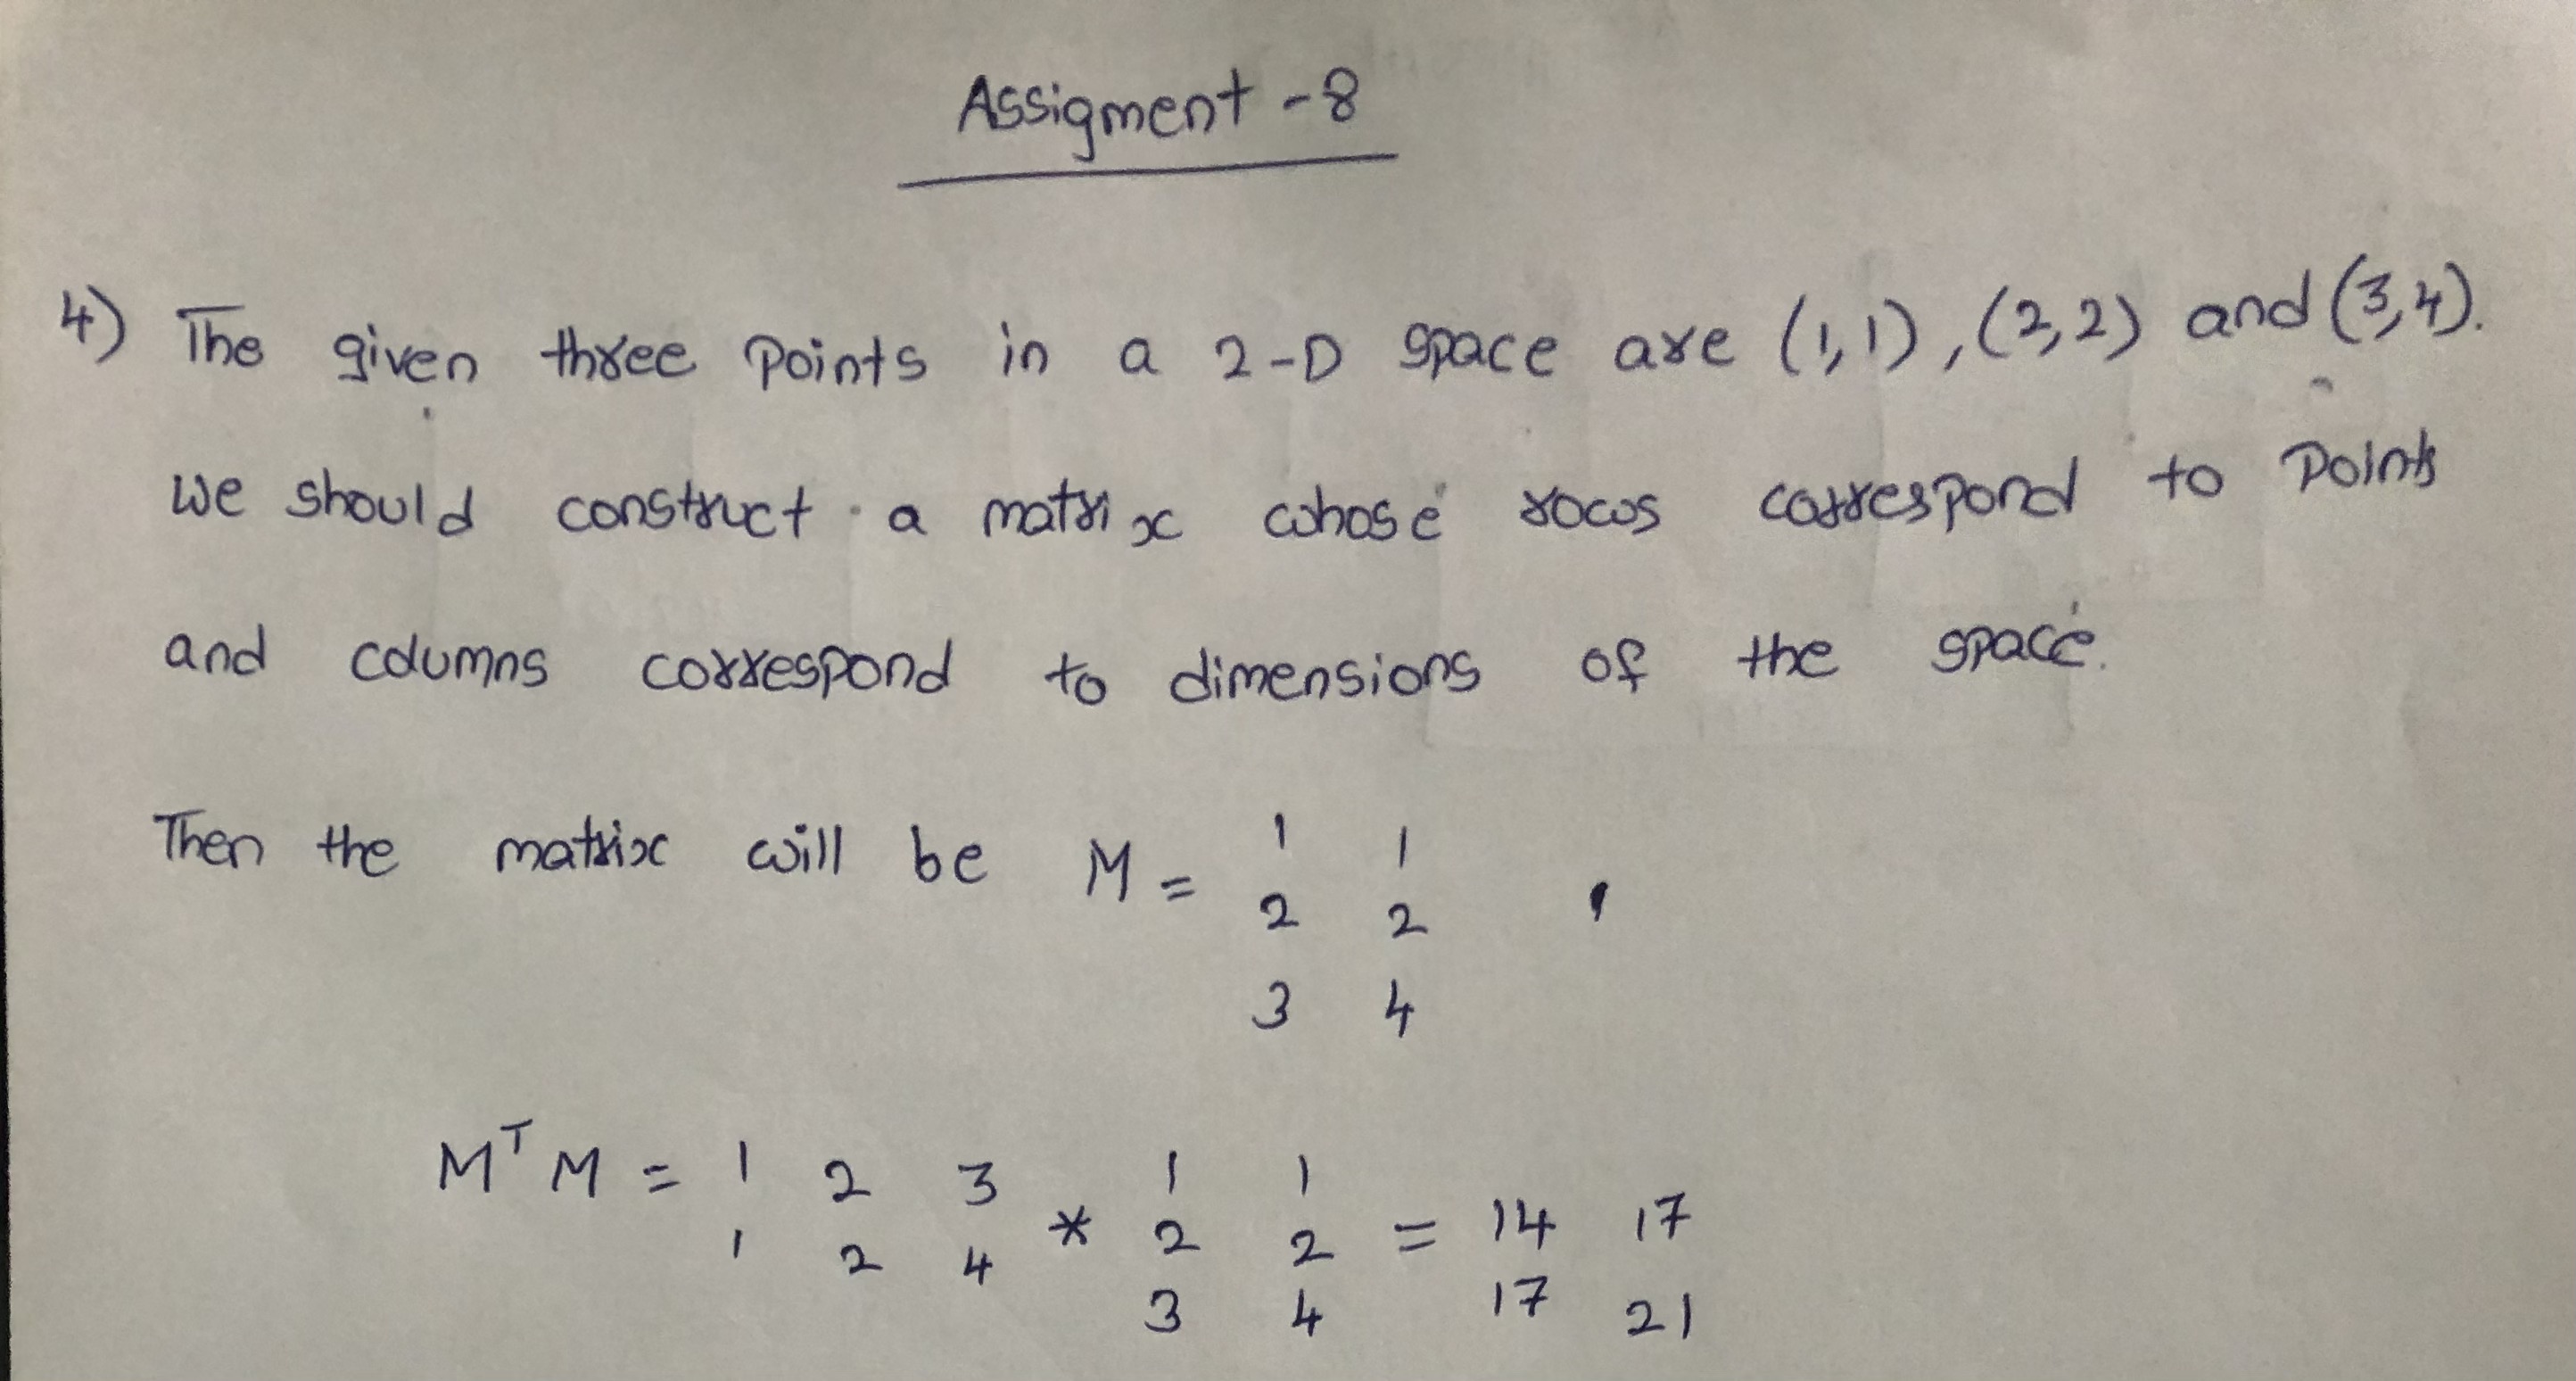 Assigment - 8
4) The given three points in a 2-D space are (1,1), (2,2) and (3,4).
We should construct a matrix whose rows correspond to points
and columns correspond to dimensions of the space.
Then the matrix will be M = 1 1
2 2
3 4
MᵀM = 1 2 3 * 1 1 = 14 17
1 2 4 2 2 17 21
3 4